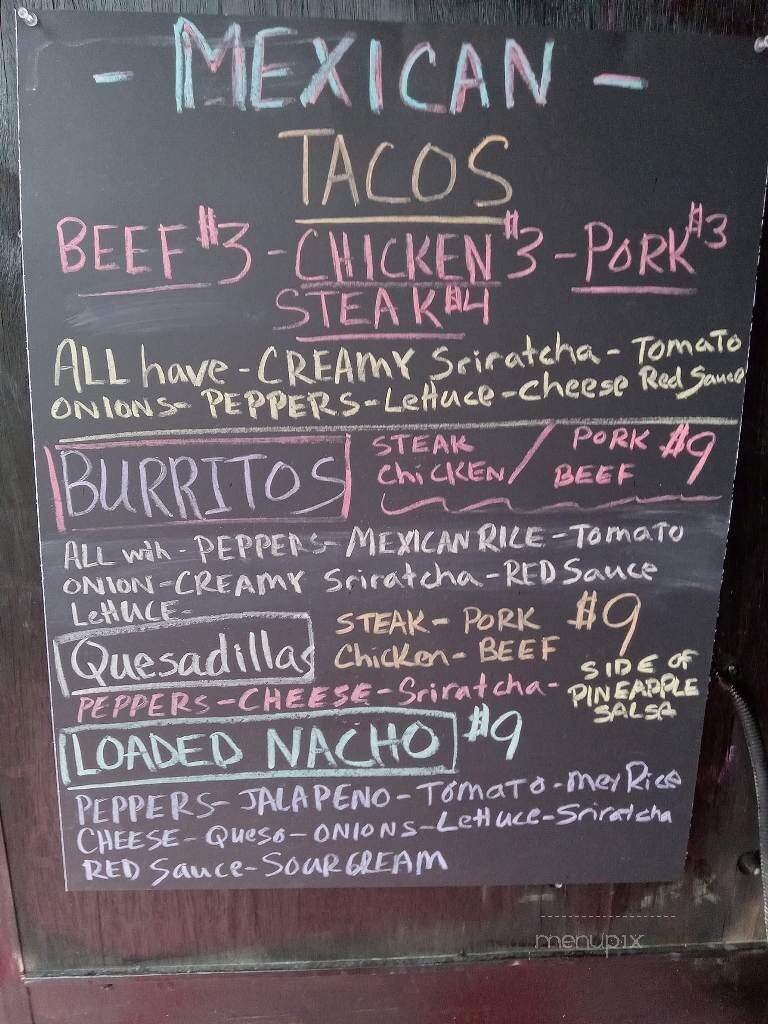 - MEXICAN -
TACOS
BEEF $3 - CHICKEN $3 - PORK $3
STEAK $4
ALL have - CREAMY Sriratcha - TomaTo
ONIONS - PEPPERS - LeHuce - cheese Red Sauce
BURRITOS STEAK / PORK $9
ChiCKEN / BEEF
ALL with - PEPPERS - MEXICAN RICE - Tomato
ONION - CREAMY Sriratcha - RED Sauce
LeHUCE -
Quesadillas STEAK - PORK $9
Chicken - BEEF
PEPPERS - CHEESE - Sriratcha - SIDE OF
PINEAPPLE
SALSA
LOADED NACHO $9
PEPPERS - JALAPENO - TomaTo - mex Rice
CHEESE - Queso - ONIONS - LeHuce - Sriratcha
RED Sauce - SOUR CREAM
menupix